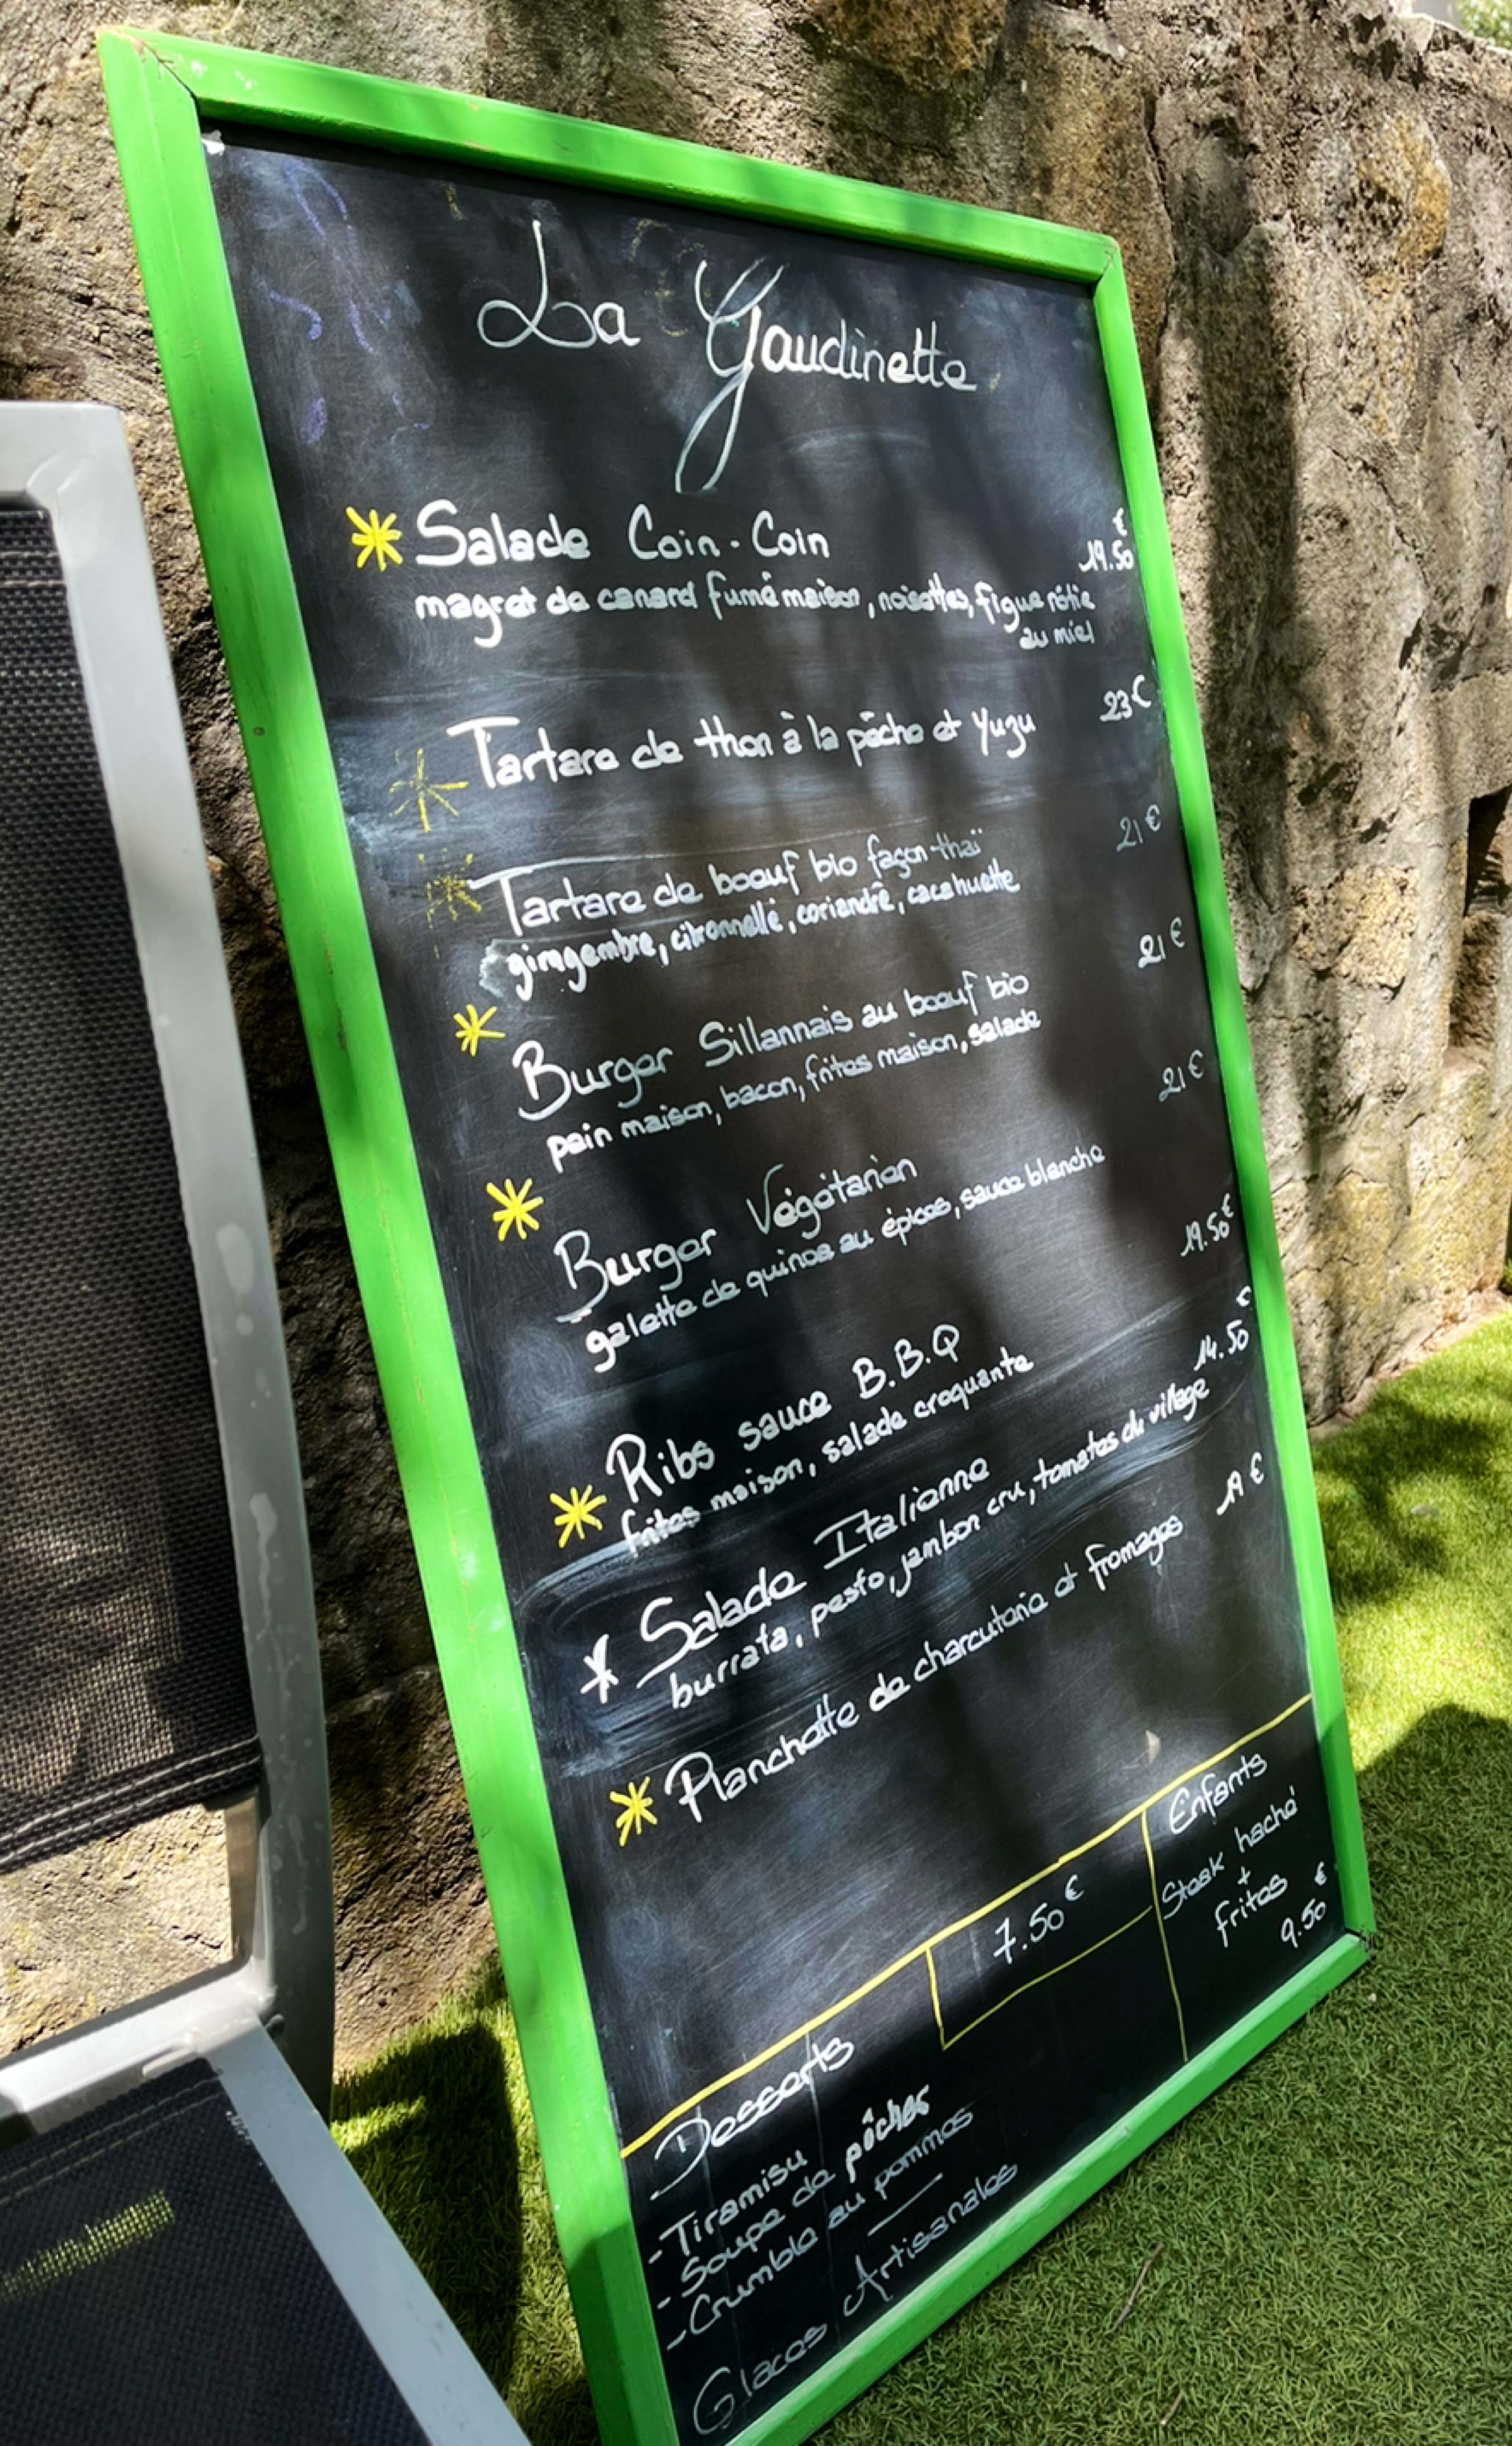 La Gaudinette
Salade Coin-Coin 19.50€
magret de canard fumé maison, noisettes, figue rôtie
au miel
Tartare de thon à la pêche et Yuzu 23€
Tartare de boeuf bio façon thaï 21€
gingembre, citronnelle, coriandre, cacahuette
Burger Sillannais au boeuf bio 21€
pain maison, bacon, frites maison, salade
Burger Végétarien 21€
galette de quinoa au épices, sauce blanche
Ribs sauce B.B.Q 19.50€
frites maison, salade croquante
Salade Italienne 14.50€
burrata, pesto, jambon cru, tomates du village
Planchette de charcuterie et fromages 19€
Desserts 7.50€
- Tiramisu
- Soupe de pêches
- Crumble au pommes
Glaces Artisanales
Enfants
Steak haché
+
frites
9.50€